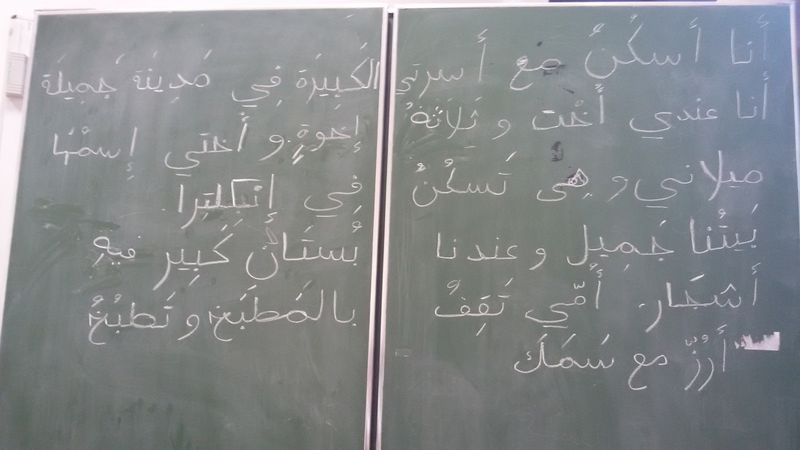 أَنا أَسكُنُ مع أُسرتي الكَبِيرَة فِي مَدِينَة جَمِيلَة
أَنا عندي أُخْت و ثَلَاثَةُ إخوةٍ و أُختي إسمْهَا
ميلاني و هِى تَسكُنُ فِي إنكِلتِرا
بَيتُنا جَمِيل و عندنا بُستَانٌ كَبِير فيهِ
أَشجَار. أُمّي تَقِفُ بالمَطبَخ و تَطبُخُ
أَرُزّ مع سَمَك